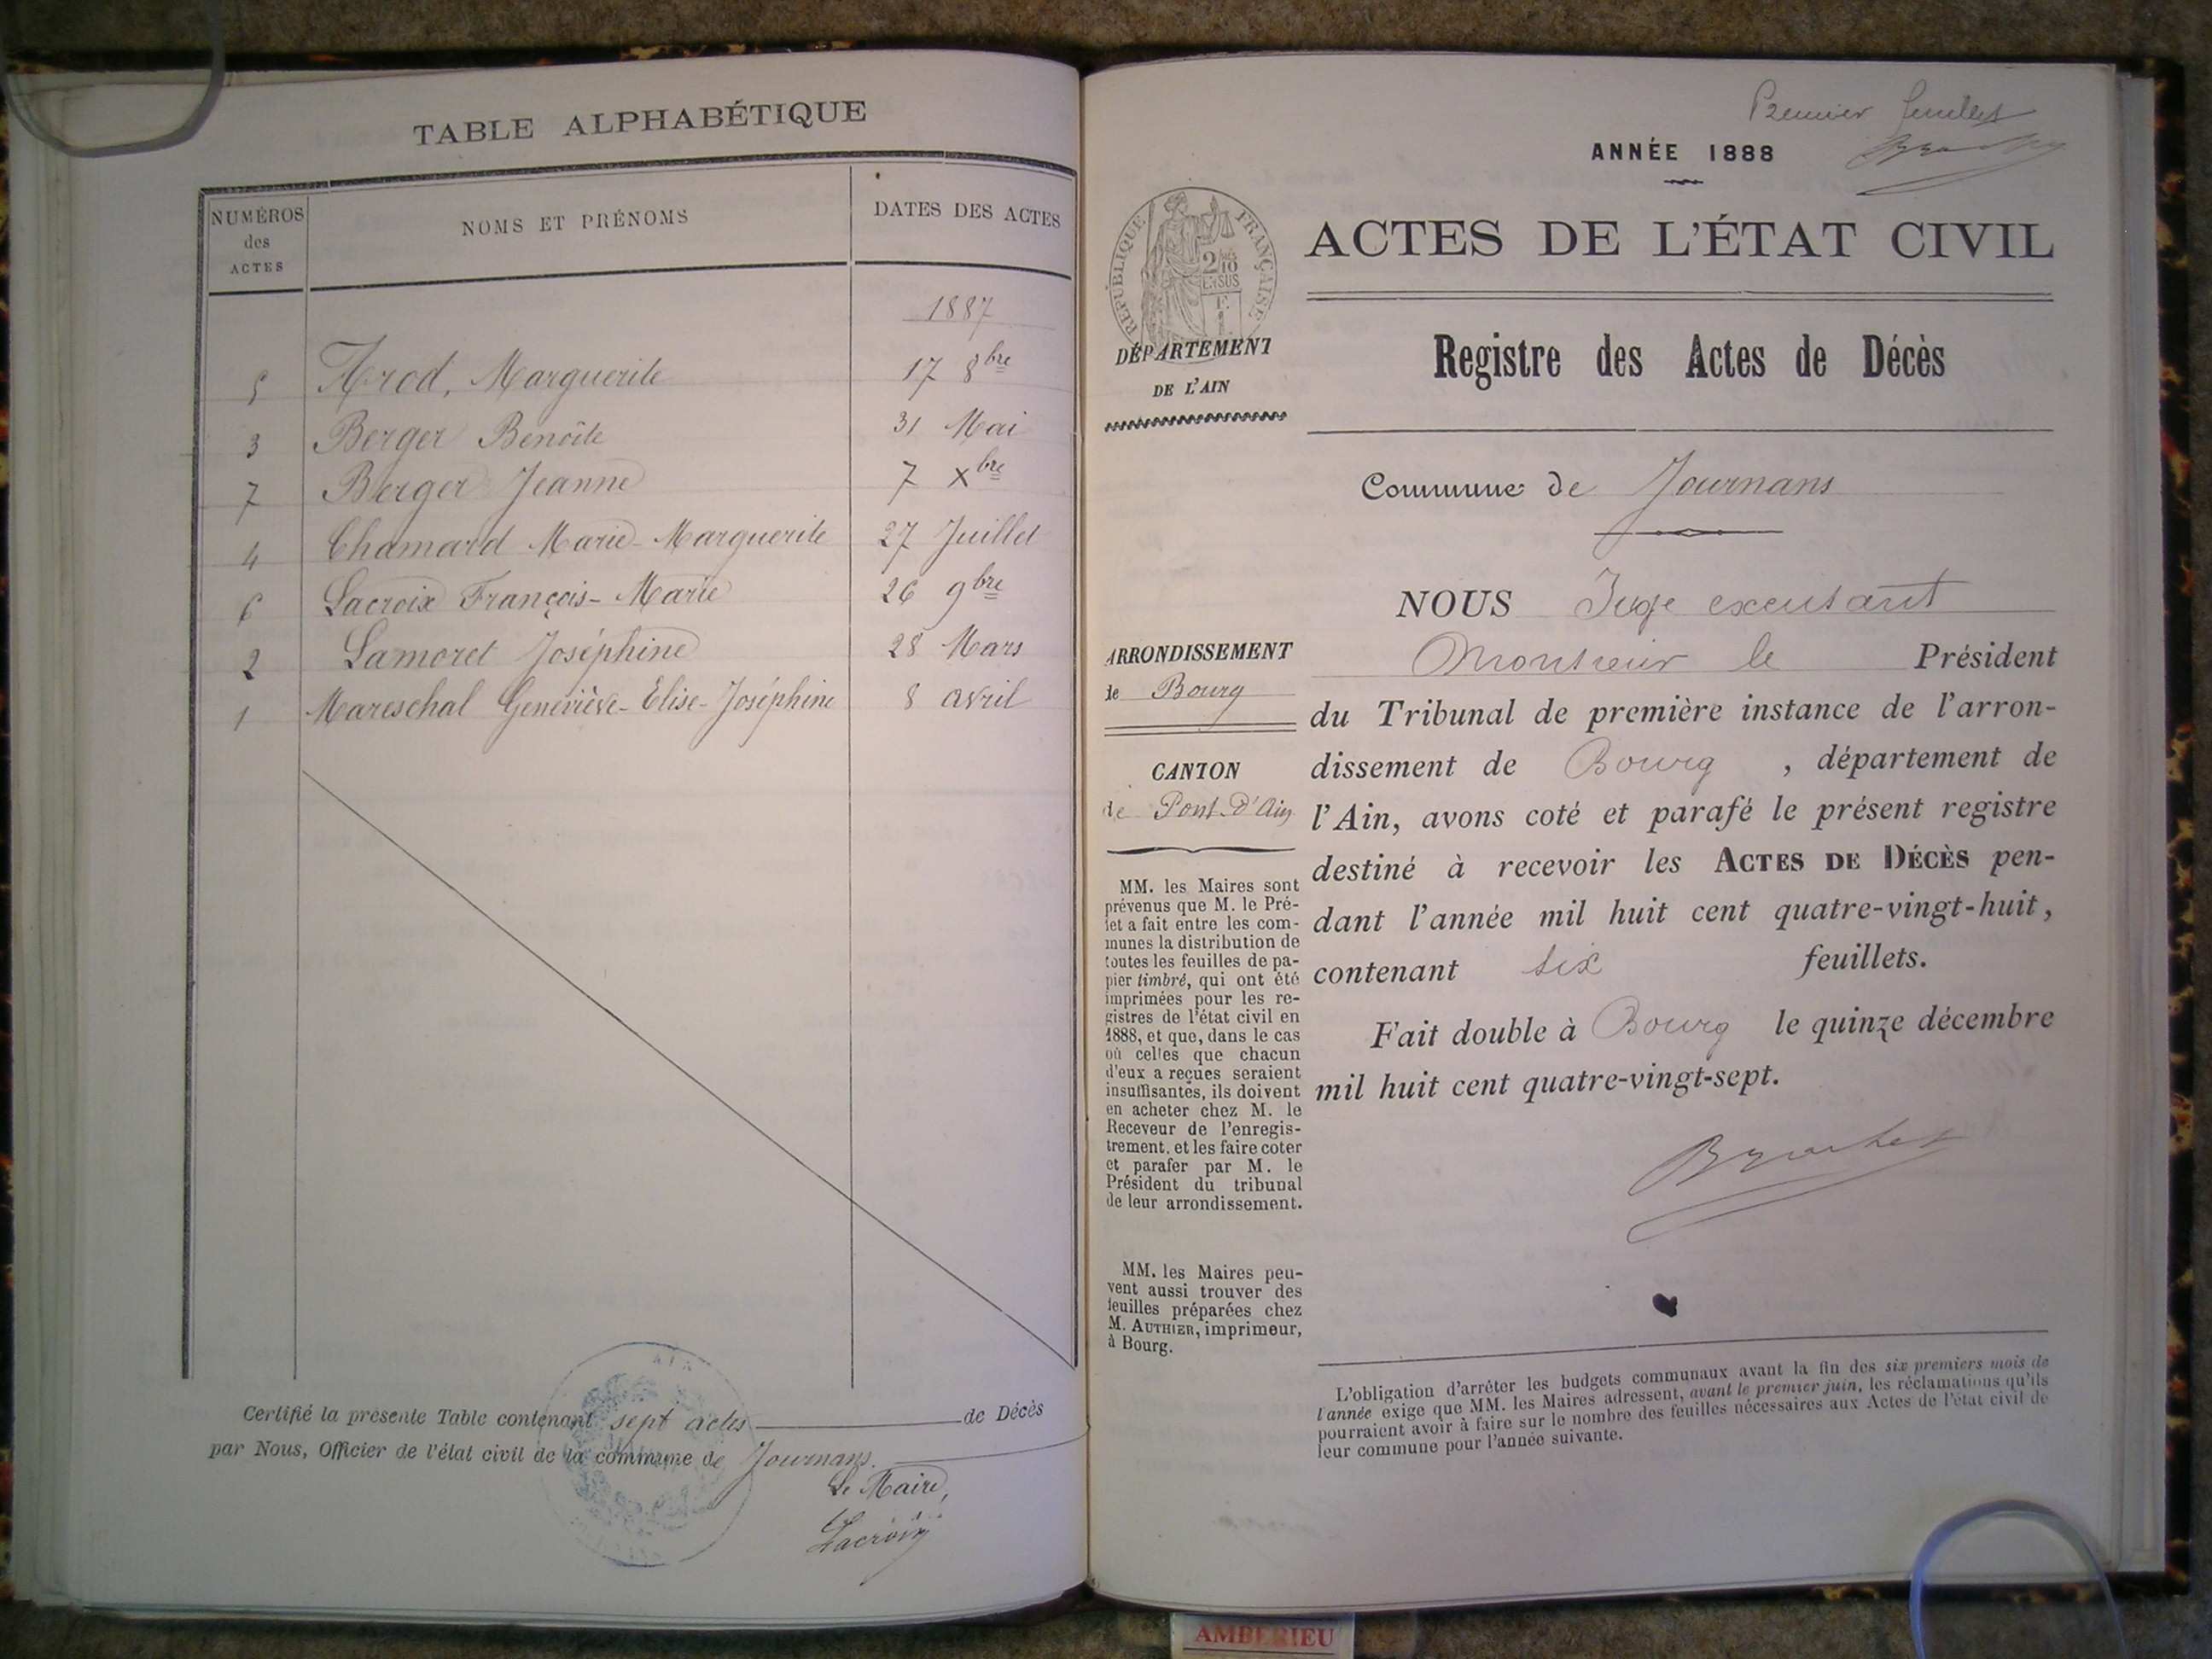 TABLE ALPHABÉTIQUE
NUMÉROS des ACTES NOMS ET PRÉNOMS DATES DES ACTES
1887
5 Arod, Marguerite 17 8bre
3 Berger Benoîte 31 Mai
7 Berger Jeanne 7 Xbre
4 Chamard Marie-Marguerite 27 Juillet
6 Lacroix François-Marie 26 9bre
2 Lamoret Joséphine 28 Mars
1 Mareschal Geneviève-Elise-Joséphine 8 avril
Certifié la présente Table contenant sept actes de Décès
par Nous, Officier de l'état civil de la commune de Journans.
Le Maire,
Lacroix
Premier feuillet
ANNÉE 1888
RÉPUBLIQUE FRANÇAISE
2/10 EN SUS
ACTES DE L'ÉTAT CIVIL
DÉPARTEMENT
DE L'AIN
Registre des Actes de Décès
Commune de Journans
ARRONDISSEMENT
de Bourg
CANTON
de Pont-d'Ain
MM. les Maires sont
prévenus que M. le Pré-
fet a fait entre les com-
munes la distribution de
toutes les feuilles de pa-
pier timbré, qui ont été
imprimées pour les re-
gistres de l'état civil en
1888, et que, dans le cas
où celles que chacun
d'eux a reçues seraient
insuffisantes, ils doivent
en acheter chez M. le
Receveur de l'enregis-
trement, et les faire coter
et parafer par M. le
Président du tribunal
de leur arrondissement.
MM. les Maires peu-
vent aussi trouver des
feuilles préparées chez
M. AUTHIER, imprimeur,
à Bourg.
NOUS Juge excusant
Monsieur le Président
du Tribunal de première instance de l'arron-
dissement de Bourg, département de
l'Ain, avons coté et parafé le présent registre
destiné à recevoir les ACTES DE DÉCÈS pen-
dant l'année mil huit cent quatre-vingt-huit,
contenant six feuillets.
Fait double à Bourg le quinze décembre
mil huit cent quatre-vingt-sept.
L'obligation d'arrêter les budgets communaux avant la fin des six premiers mois de
l'année exige que MM. les Maires adressent, avant le premier juin, les réclamations qu'ils
pourraient avoir à faire sur le nombre des feuilles nécessaires aux Actes de l'état civil de
leur commune pour l'année suivante.
AMBERIEU